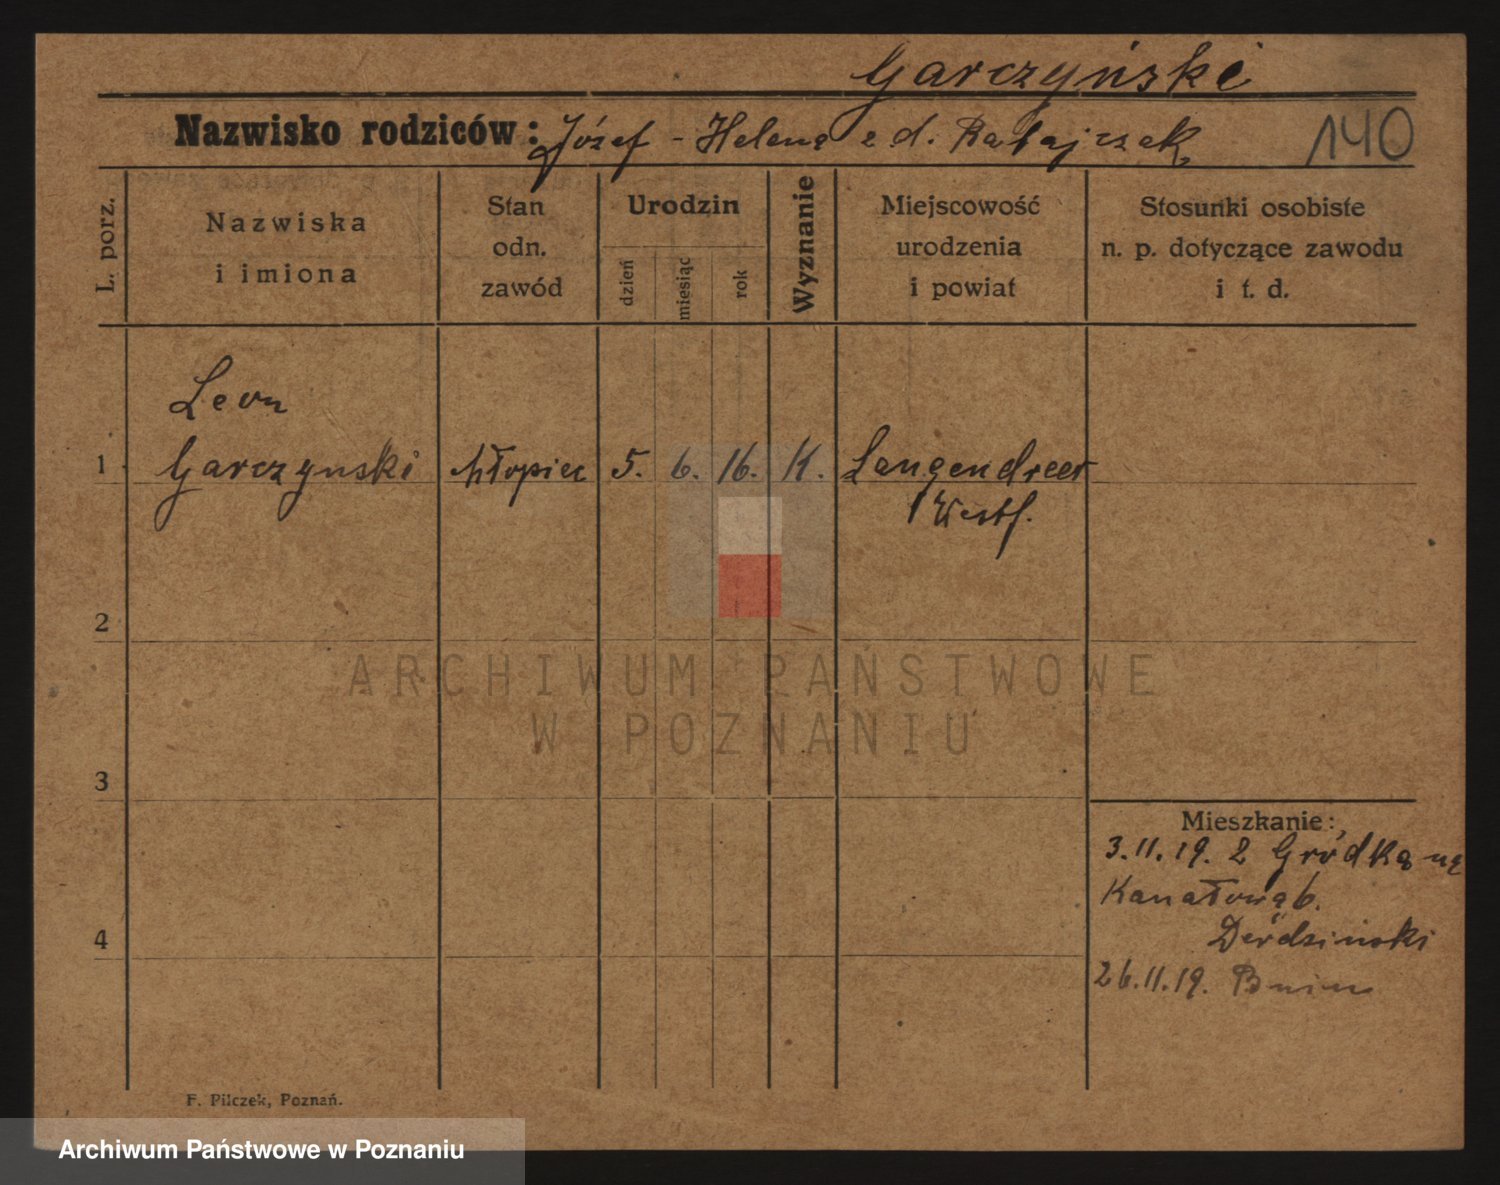 Garczyński
Nazwisko rodziców: Józef - Helena z d. Ratajczak
140
L. porz.
Nazwiska
i imiona
Stan
odn.
zawód
Urodzin
dzień
miesiąc
rok
Wyznanie
Miejscowość
urodzenia
i powiat
Stosunki osobiste
n. p. dotyczące zawodu
i t. d.
Leon
1 Garczynski chłopiec 5. 6. 16. K. Langendreer
Westf.
2
3
4
Mieszkanie:
3.11.19. z Gródka na
Kanałową 6.
26.11.19. Bnin
F. Pilczek, Poznań.
ARCHIWUM PAŃSTWOWE
W POZNANIU
Archiwum Państwowe w Poznaniu